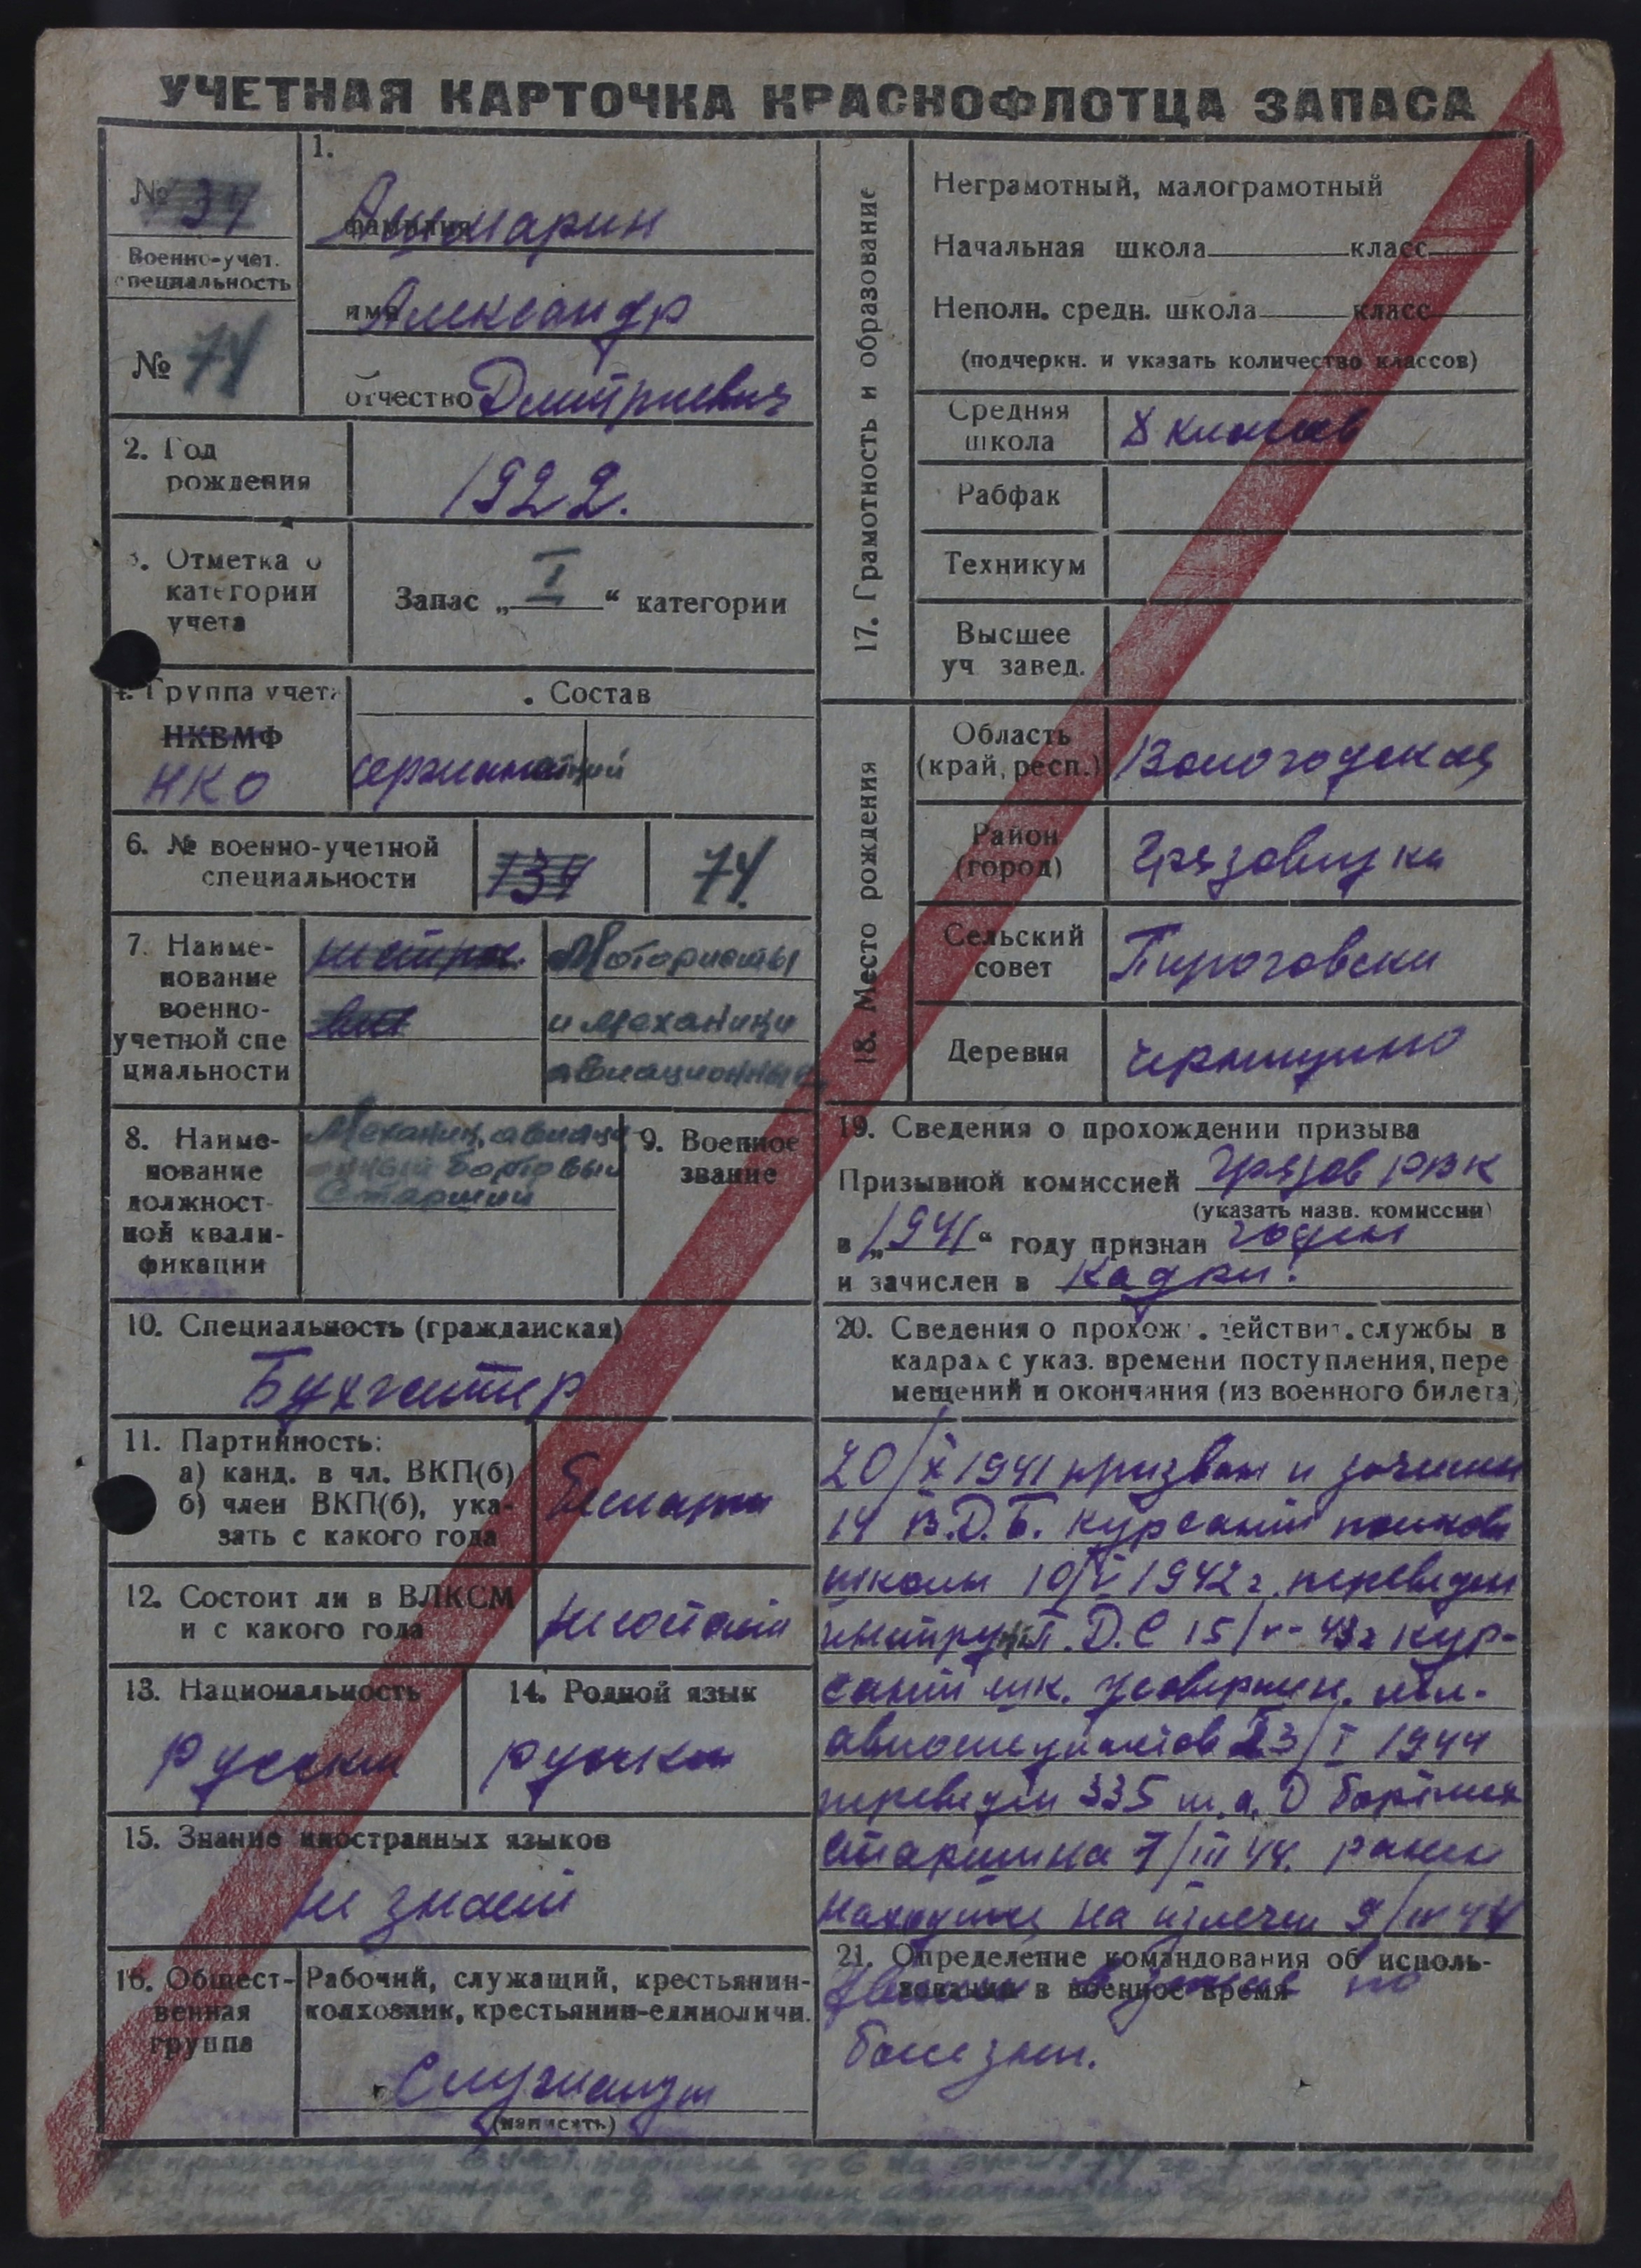 УЧЕТНАЯ КАРТОЧКА КРАСНОФЛОТЦА ЗАПАСА
№ 134
Военно-учет.
специальность
№ 74
1.
фамилия Ашмарин
имя Александр
отчество Дмитриевич
2. Год
рождения
1922.
3. Отметка о
категории
учета
Запас „ I “ категории
4. Группа учета
НКВМФ
НКО
. Состав
сержантский
6. № военно-учетной
специальности
134
74.
7. Наиме-
нование
военно-
учетной спе
циальности
Мотористы
и механики
авиационные
8. Наиме-
нование
должност-
ной квали-
фикации
Механик авиаци
онный бортовый
Старший
9. Военное
звание
10. Специальность (гражданская)
Бухгалтер
11. Партийность:
а) канд. в чл. ВКП(б)
б) член ВКП(б), ука-
зать с какого года
Беспарти
12. Состоит ли в ВЛКСМ
и с какого года
не состоит
13. Национальность
русский
14. Родной язык
русский
15. Знание иностранных языков
не знает
16. Общест-
венная
группа
Рабочий, служащий, крестьянин-
колхозник, крестьянин-единоличн.
Служащий
(написать)
17. Грамотность и образование
Неграмотный, малограмотный
Начальная школа класс
Неполн. средн. школа класс
(подчеркн. и указать количество классов)
Средняя
школа
классов
Рабфак
Техникум
Высшее
уч завед.
18. Место рождения
Область
(край, респ.)
Вологодская
Район
(город)
Грязовецки
Сельский
совет
Пироговски
Деревня
19. Сведения о прохождении призыва
Призывной комиссией Грязов РВК
(указать назв. комиссии)
в „1941“ году признан годен
и зачислен в кадры.
20. Сведения о прохож . действит. службы в
кадрах с указ. времени поступления, пере
мещений и окончания (из военного билета)
20/X 1941 призван и зачислен
14 В.Д.Б. курсант полковой
школы 10/V 1942 г. переведен
Д.С 15/V- 43г кур-
сант шк. усовершен. мл.
авиоспециалистов 23/I 1944
переведен 335 ш.а.Д бортмех
старшина 7/III 44. ранен
находится на излечен 9/III 44
21. Определение командования об исполь-
зовании в военное время
по
болезни.